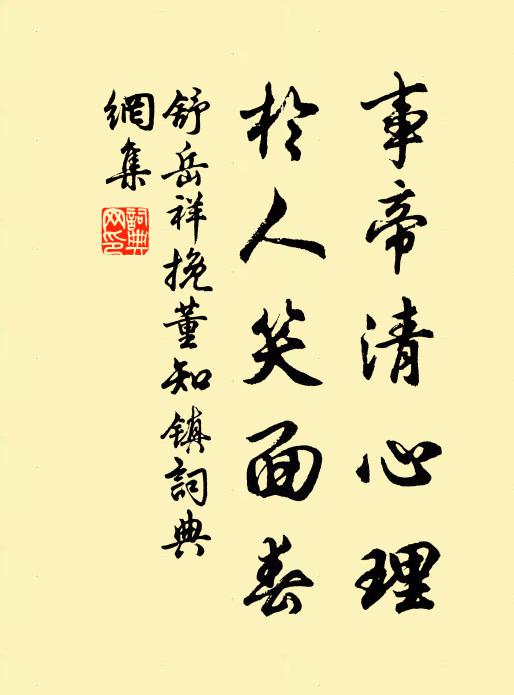 事帝清心理
於人笑面春
舒岳祥挽董知鎮詞典
網集
詞典
网印